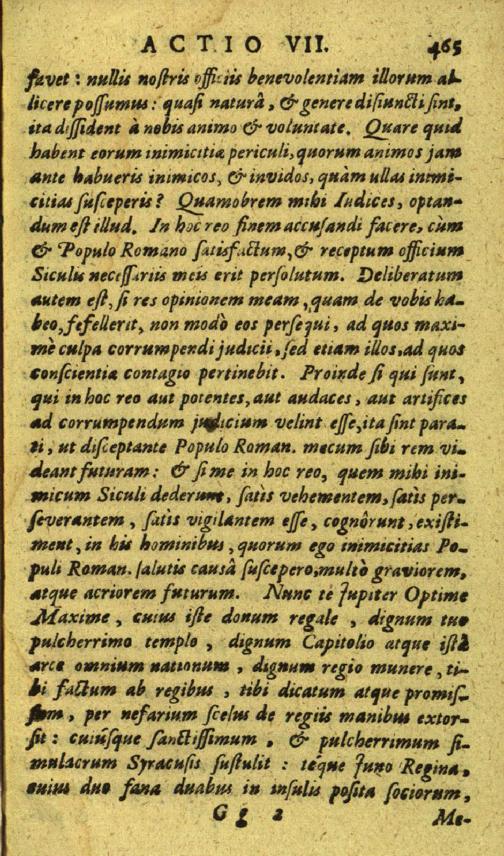 ACTIO VII. 465
favet : nullis nostris officiis benevolentiam illorum al-
licere possumus : quasi naturâ, & genere disiuncti sint,
ita dissident à nobis animo & voluntate. Quare quid
habent eorum inimicitiæ periculi, quorum animos jam
ante habueris inimicos, & invidos, quàm ullas inimi-
citias susceperis? Quamobrem mihi Iudices, optan-
dum est illud. In hoc reo finem accusandi facere, cùm
& Populo Romano satisfactum, & receptum officium
Siculis necessariis meis erit persolutum. Deliberatum
autem est, si res opinionem meam, quam de vobis ha-
beo, fefellerit, non modò eos persequi, ad quos maxi-
mè culpa corrumpendi judicii, sed etiam illos, ad quos
conscientia contagio pertinebit. Proinde si qui sunt,
qui in hoc reo aut potentes, aut audaces, aut artifices
ad corrumpendum judicium velint esse, ita sint para-
ti, ut disceptante Populo Roman. mecum sibi rem vi-
deant futuram: & si me in hoc reo, quem mihi ini-
micum Siculi dederunt, satìs vehementem, satìs per-
severantem, satìs vigilantem esse, cognôrunt, existi-
ment, in his hominibus, quorum ego inimicitias Po-
puli Roman. salutis causâ suscepero, multò graviorem,
atque acriorem futurum. Nunc te Jupiter Optime
Maxime, cuius iste donum regale, dignum tuo
pulcherrimo templo, dignum Capitolio atque istâ
arce omnium nationum, dignum regio munere, ti-
bi factum ab regibus, tibi dicatum atque promis-
sum, per nefarium scelus de regiis manibus extor-
sit : cuiúsque sanctissimum, & pulcherrimum si-
mulacrum Syracusis sustulit : téque Juno Regina,
cuius duo fana duabus in insulis posita sociorum,
G g 2 Me-